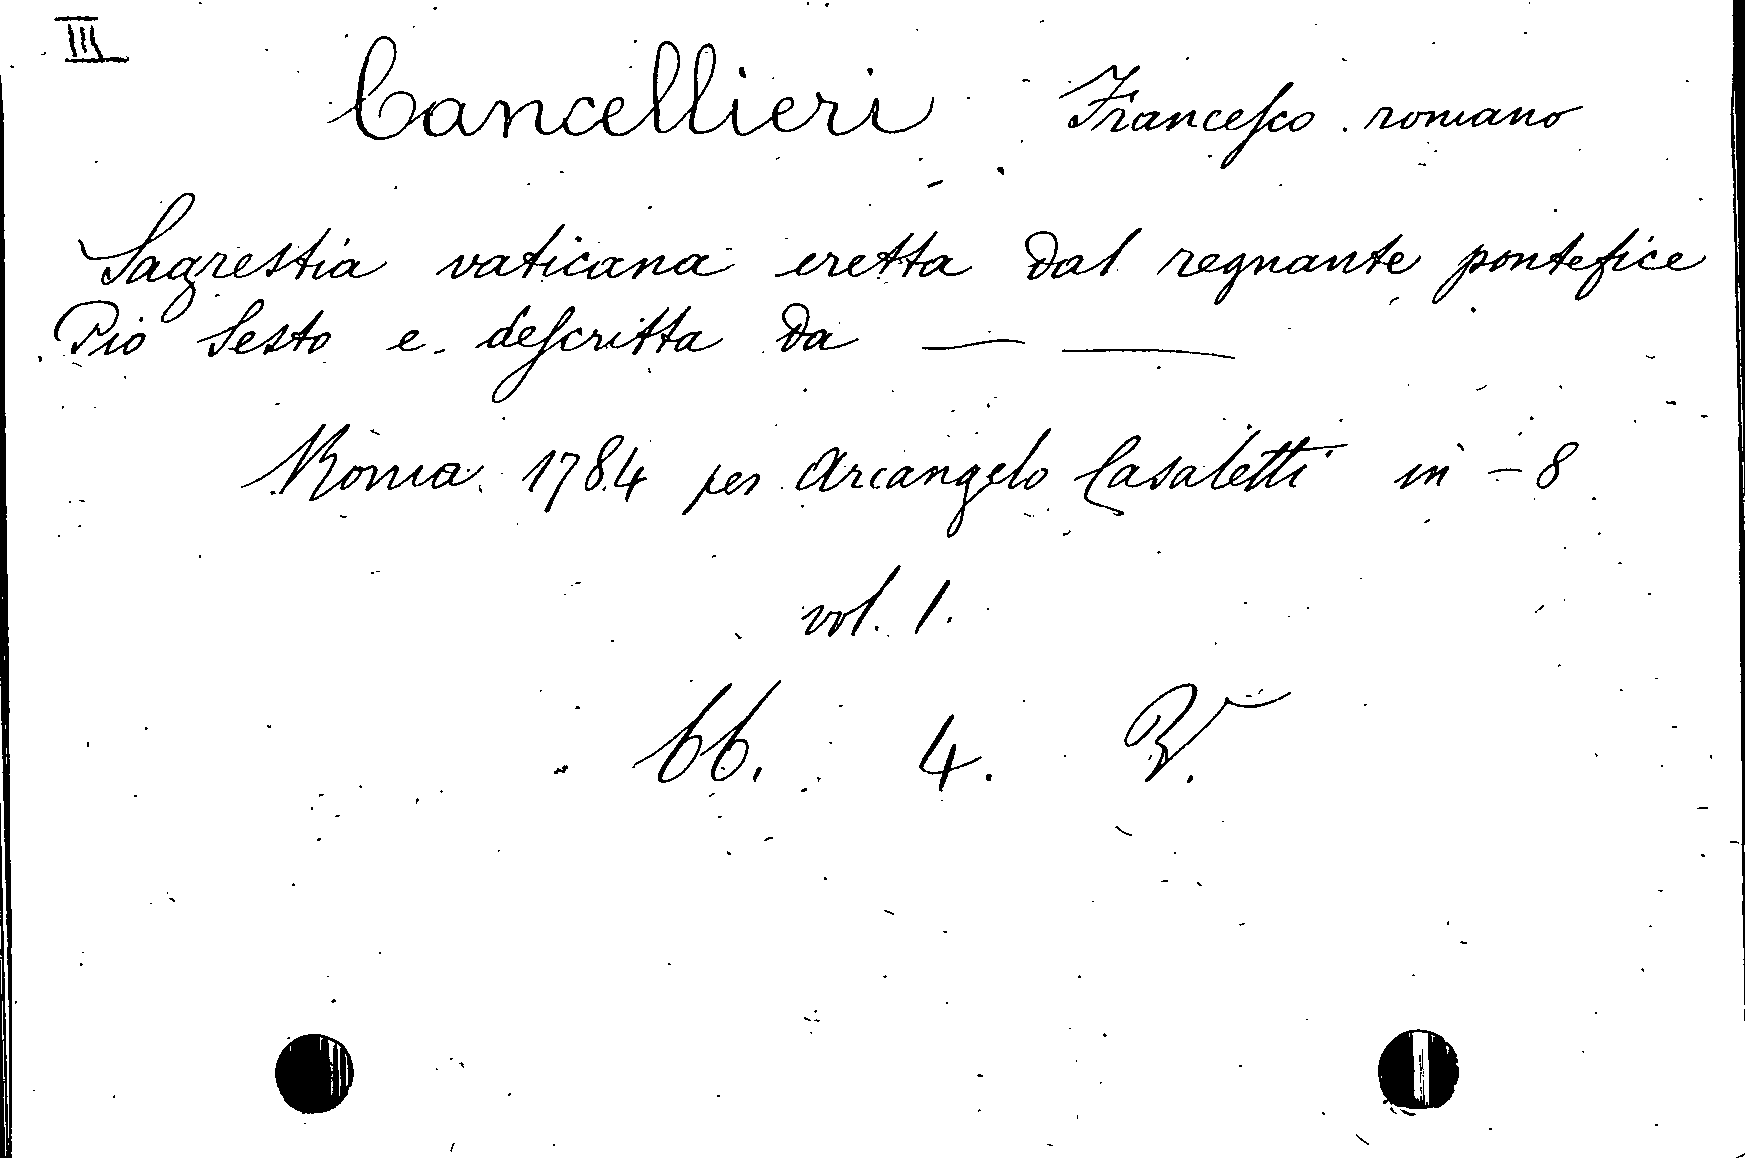 III
Cancellieri Francesco romano
Sagrestia vaticana eretta dal regnante pontefice
Pio Sesto e descritta da — —
Roma 1784 per Arcangelo Casaletti in - 8
vol. 1.
66. 4.